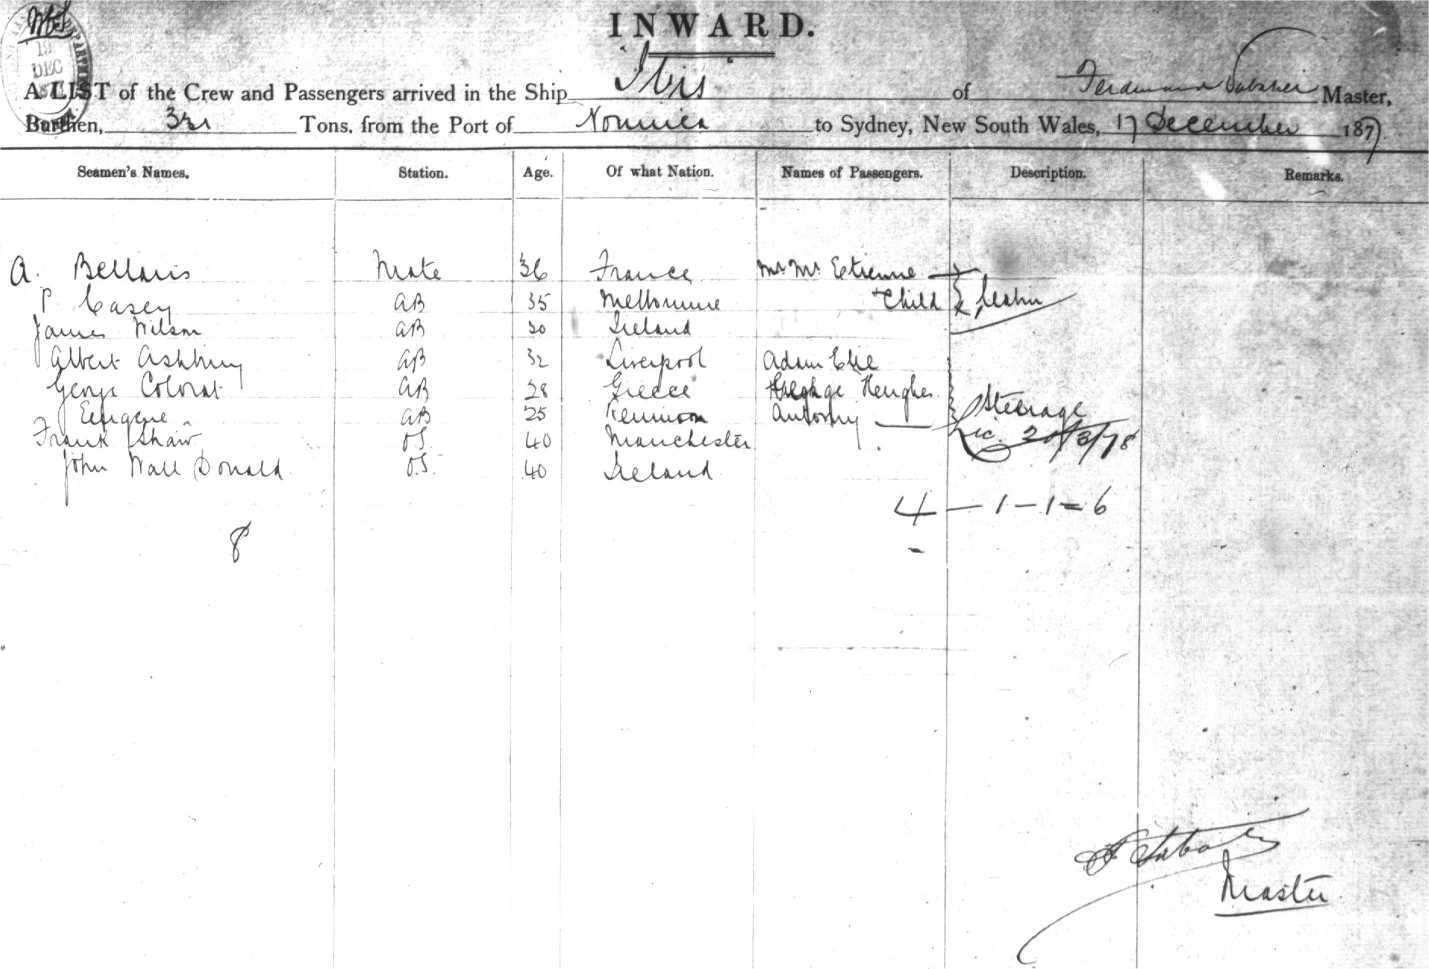 INWARD.
A LIST of the Crew and Passengers arrived in the Ship "Ibis" of Ferdinand Master,
Burthen, Tons, from the Port of Noumea to Sydney, New South Wales, 17 December 1877
Seamen's Names. Station. Age. Of what Nation. Names of Passengers. Description. Remarks.
A. Bellanis Mate 36 France Mr Mrs Etienne
P Casey AB 35 Melbourne + Child Cabin
James Wilson AB 30 Ireland
Albert Ashbury AB 32 Liverpool Adam Elie
George Colorat AB 28 Greece Hughes
Eeugene AB 25 Reunion Antony Steerage
Frank Shaw OS 40 Manchester 20/3/78
John Wall Donald OS 40 Ireland
4 - 1 - 1 = 6
8
Master
19
DEC